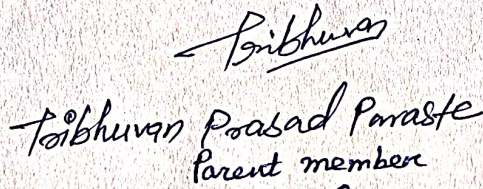 Tribhuvan
Tribhuvan Prasad Paraste
Parent member